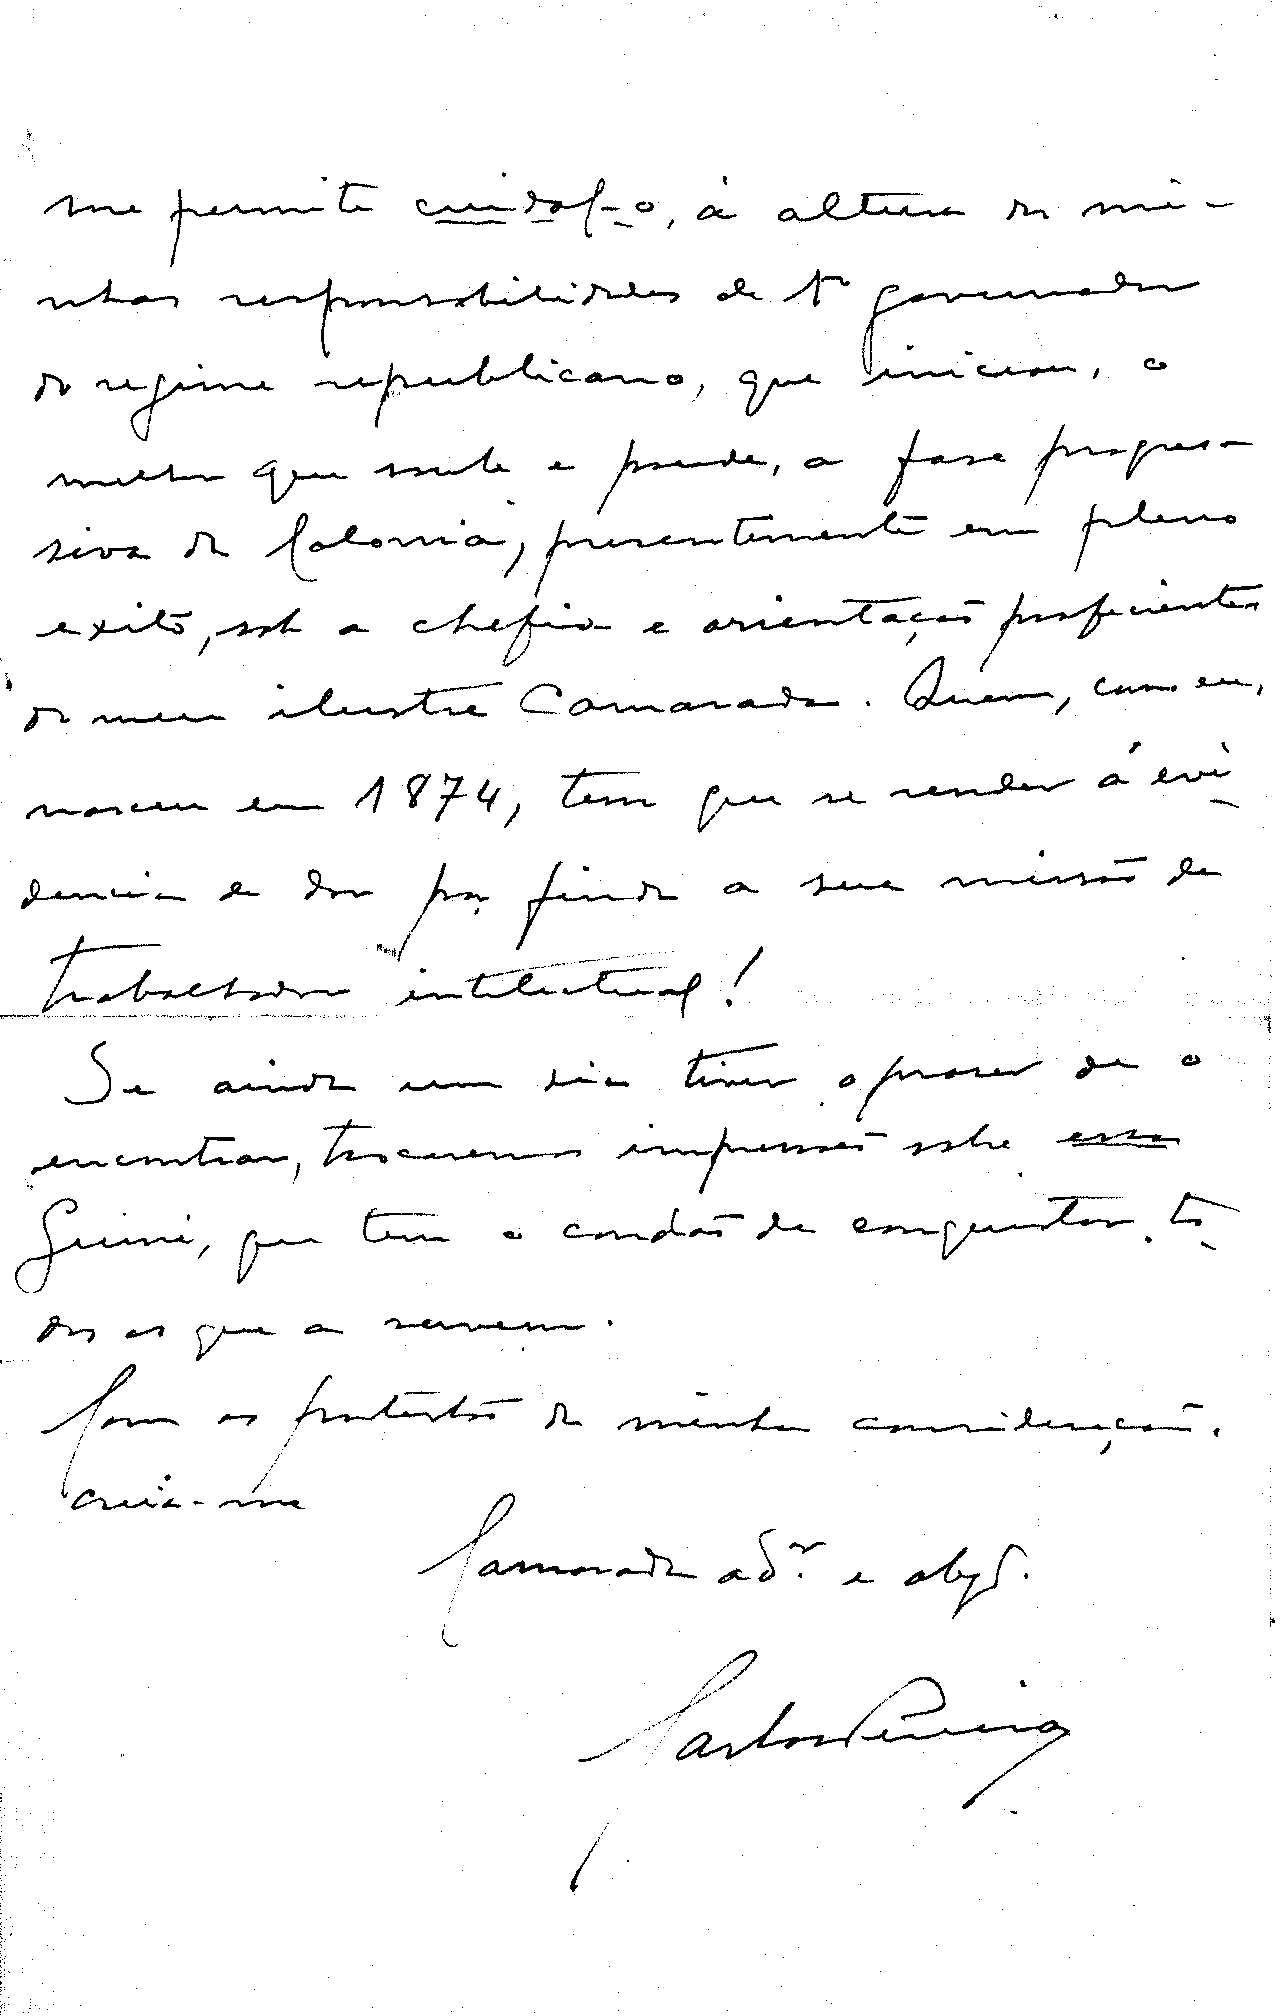 me permite cuidal-o, á altura das mi-
nhas responsabilidades de 1º governador
do regime republicano, que iniciou, o
melhor que soube e poude, a fase progres-
siva da Colonia, presentemente em pleno
exito, sob a chefia e orientação proficientes
do meu ilustre Camarada. Quem, como eu,
nasceu em 1874, tem que se render á evi-
dencia e dar por finda a sua missão de
trabalhador intelectual!
Se ainda um dia tiver o prazer de o
encontrar, trocaremos impressões sobre essa
Guiné, que tem o condão de conquistar to-
dos os que a servem.
Com os protestos da minha consideração,
creia-me
Camarada adºr. e obgdº.
Carlos Pereira